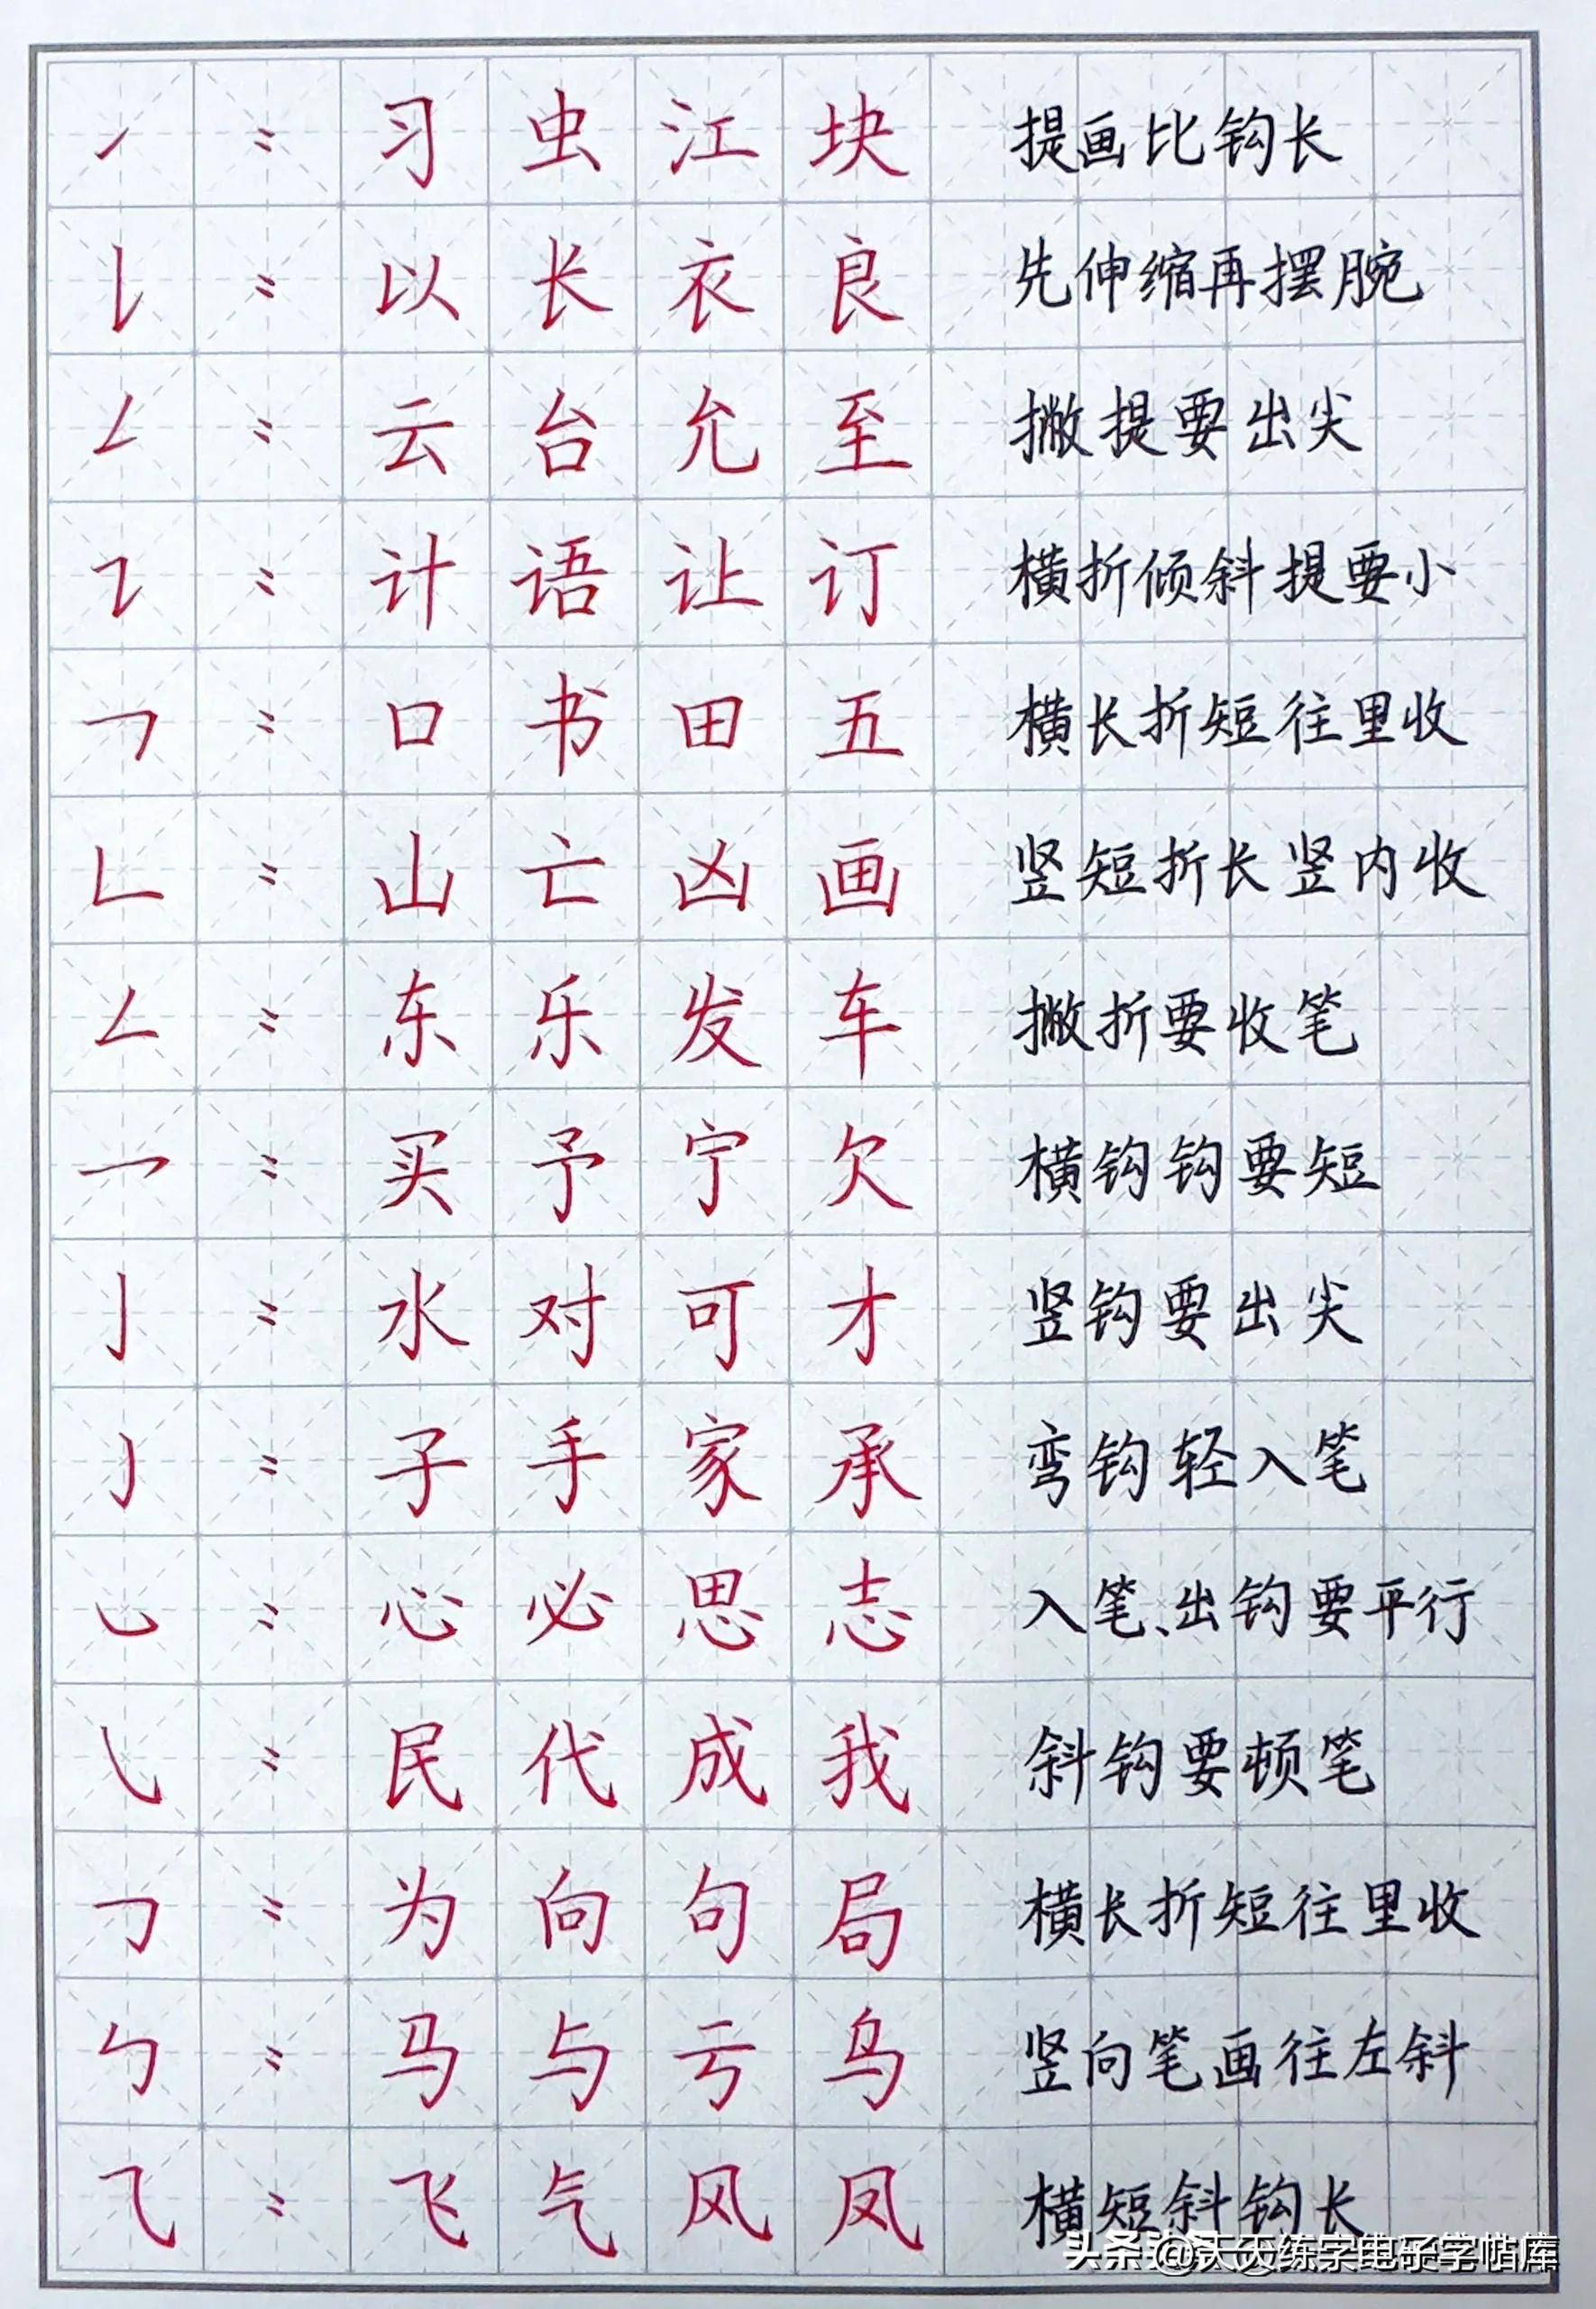 ㇀：习 虫 江 块 提画比钩长
𠄌：以 长 衣 良 先伸缩再摆腕
𠃋：云 台 允 至 撇提要出尖
㇊：计 语 让 订 横折倾斜提要小
㇕：口 书 田 五 横长折短往里收
㇗：山 亡 凶 画 竖短折长竖内收
㇜：东 乐 发 车 撇折要收笔
㇖：买 予 宁 欠 横钩钩要短
亅：水 对 可 才 竖钩要出尖
㇁：子 手 家 承 弯钩轻入笔
㇃：心 必 思 志 入笔、出钩要平行
㇂：民 代 成 我 斜钩要顿笔
㇆：为 向 句 局 横长折短往里收
㇉：马 与 亏 鸟 竖向笔画往左斜
⺄：飞 气 风 凤 横短斜钩长